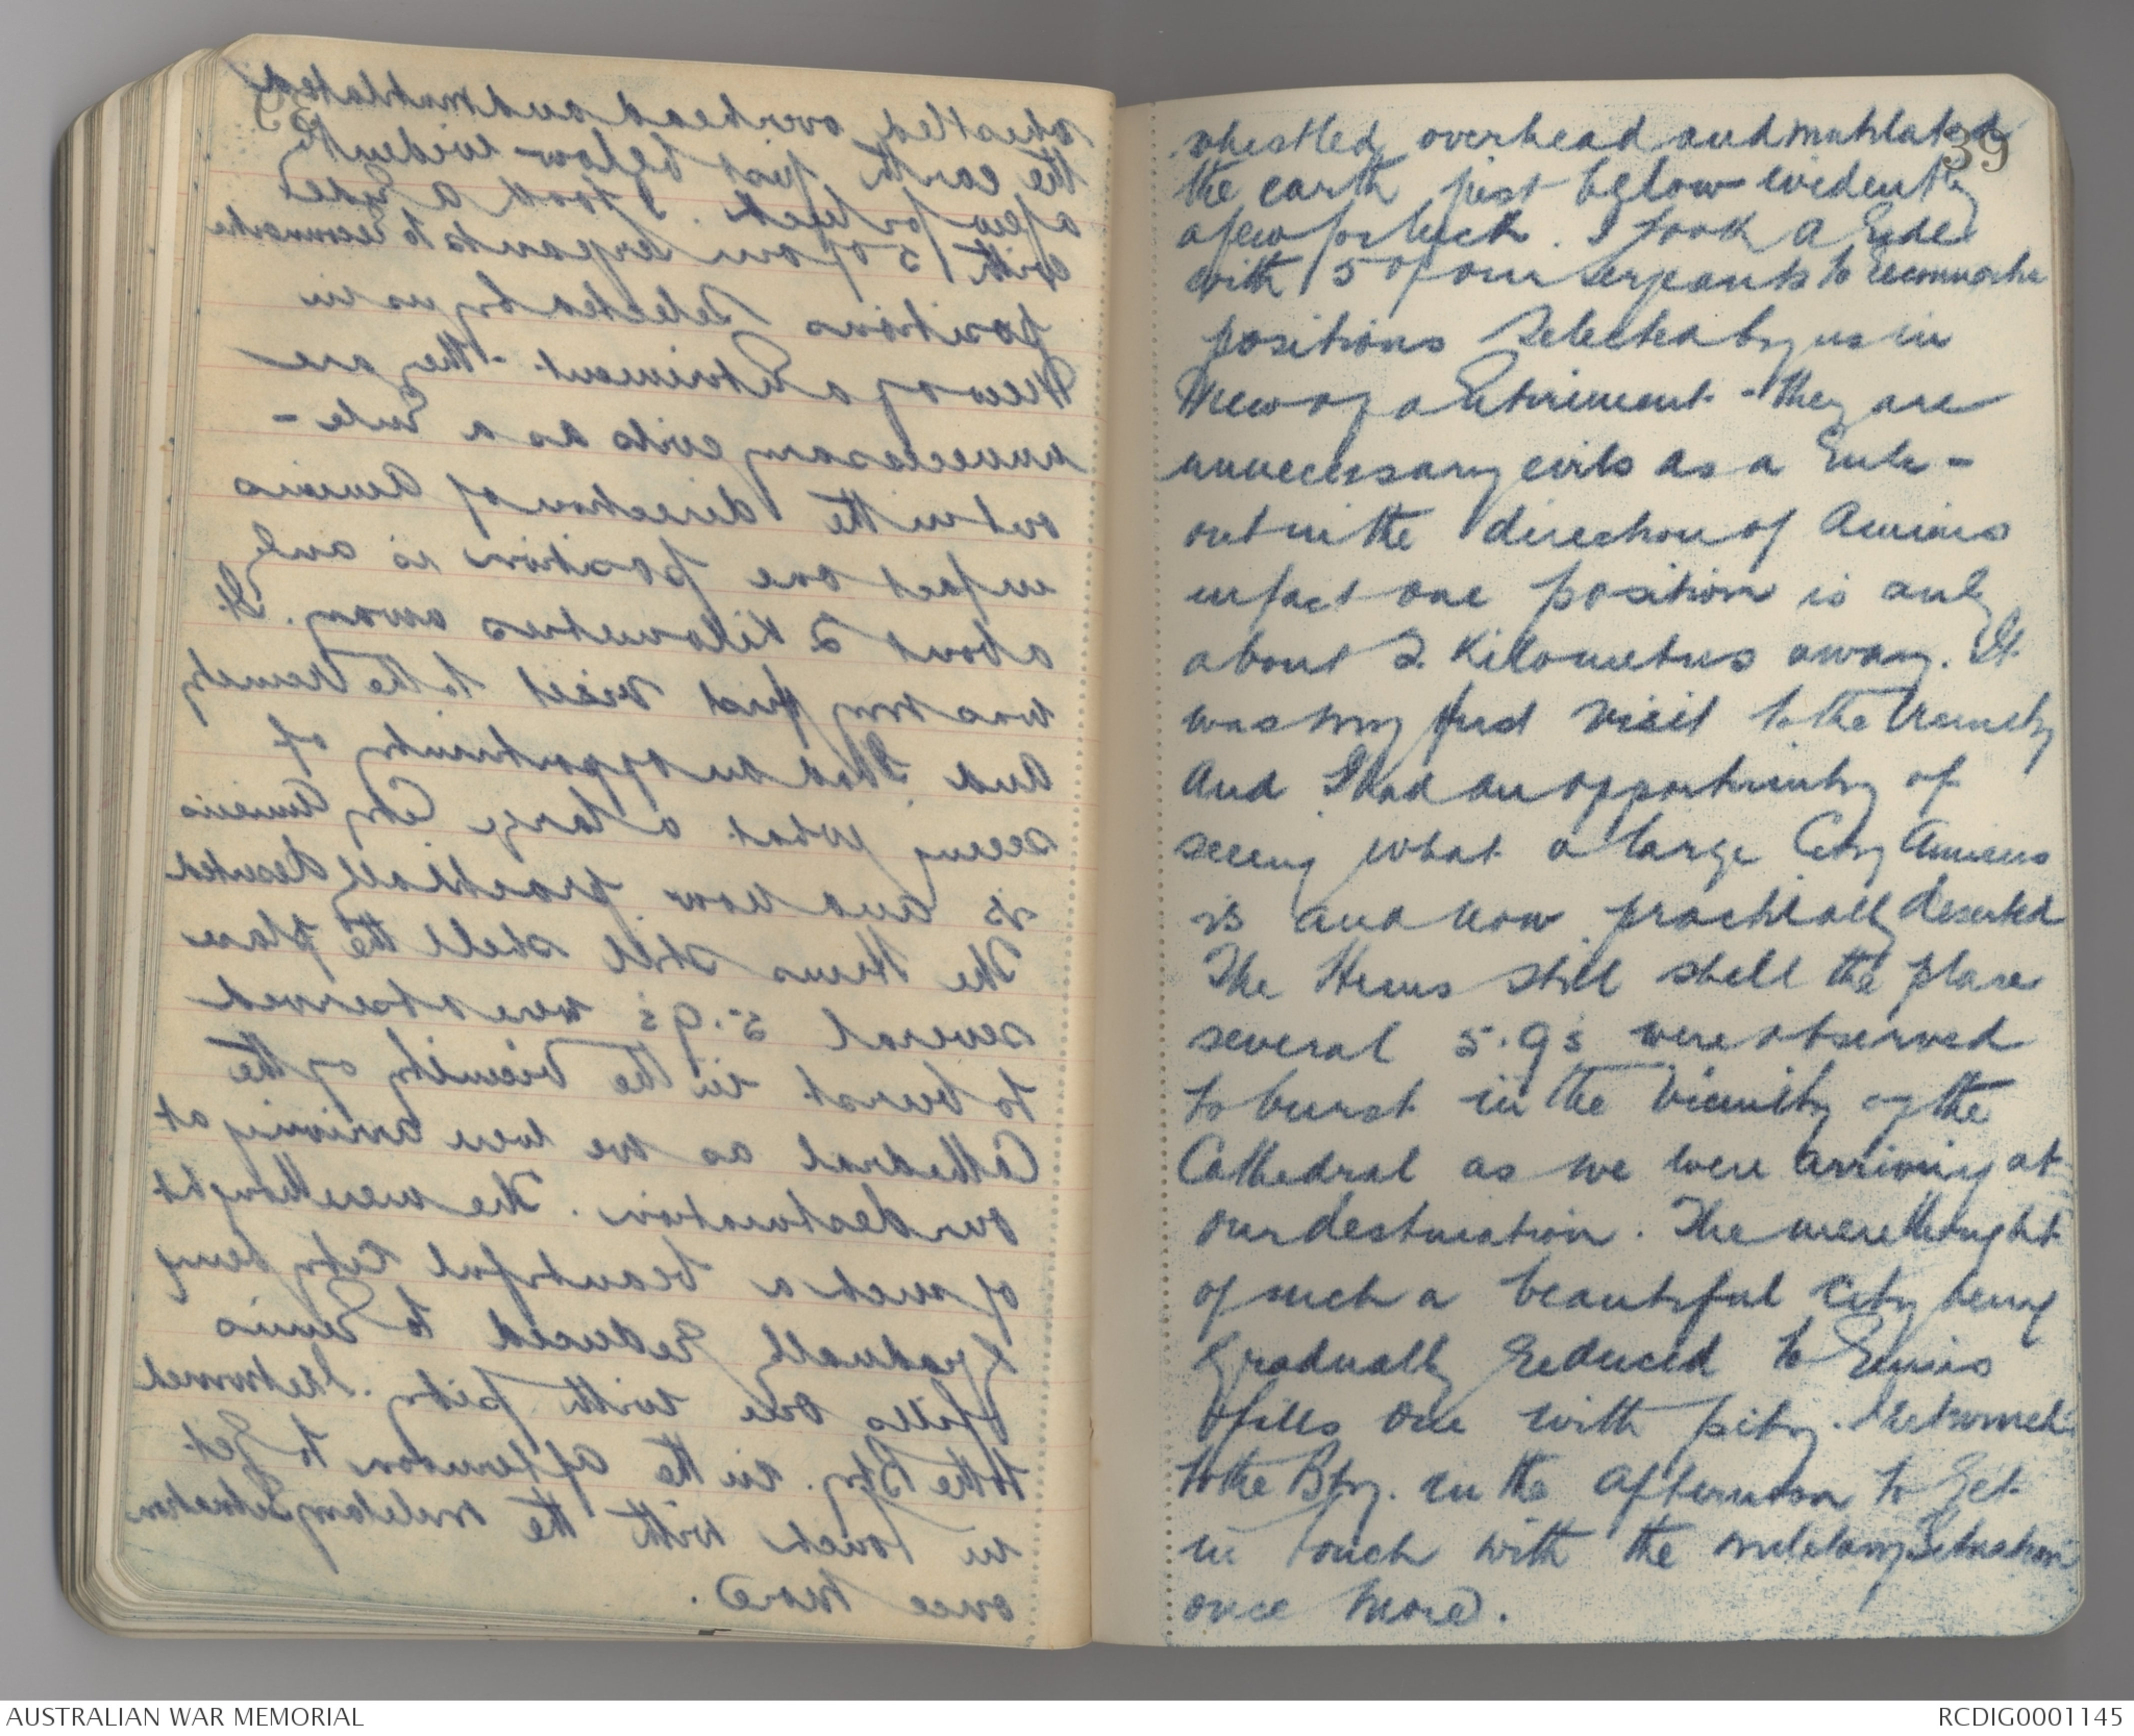 39
whistled overhead and mutilated
the earth just below evidently
a few for luck. I took a ride
with 5 of our sergeants to reconnoitre
positions selected by us in
View of a retirement - they are
unnecessary evils as a rule -
out in the direction of Amiens
in fact one position is only
about 2 Kilometres away. It
was my first visit to the vicinity
And I had an opportunity of
seeing what a large City Amiens
is and now practically deserted
The Huns still shell the place
several 5.9's were observed
to burst in the vicinity of the
Cathedral as we were arriving at
our destination. The mere thought
of such a beautiful city being
gradually reduced to ruins
fills one with pity. I returned
to the Bty. in the afternoon to get
in touch with the military situation
once more.
AUSTRALIAN WAR MEMORIAL
RCDIG0001145